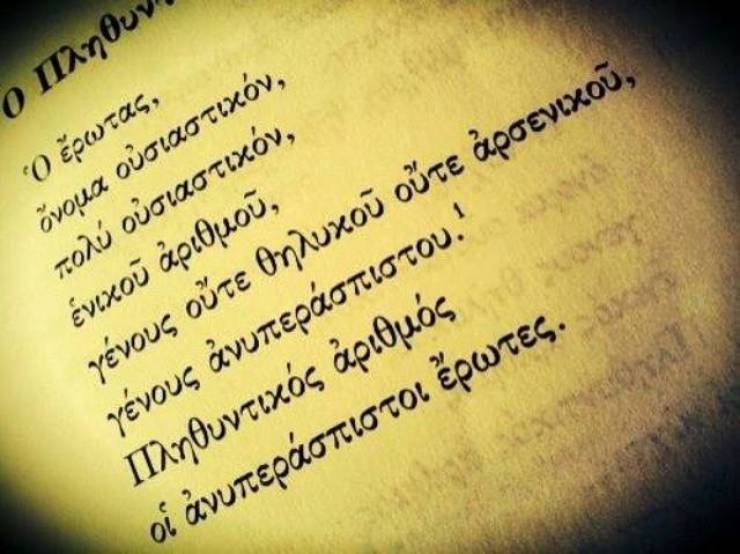 Ὁ Πληθυν
Ὁ ἔρωτας,
ὄνομα οὐσιαστικόν,
πολύ οὐσιαστικόν,
ἑνικοῦ ἀριθμοῦ,
γένους οὔτε θηλυκοῦ οὔτε ἀρσενικοῦ,
γένους ἀνυπεράσπιστου.¹
Πληθυντικός ἀριθμός
οἱ ἀνυπεράσπιστοι ἔρωτες.